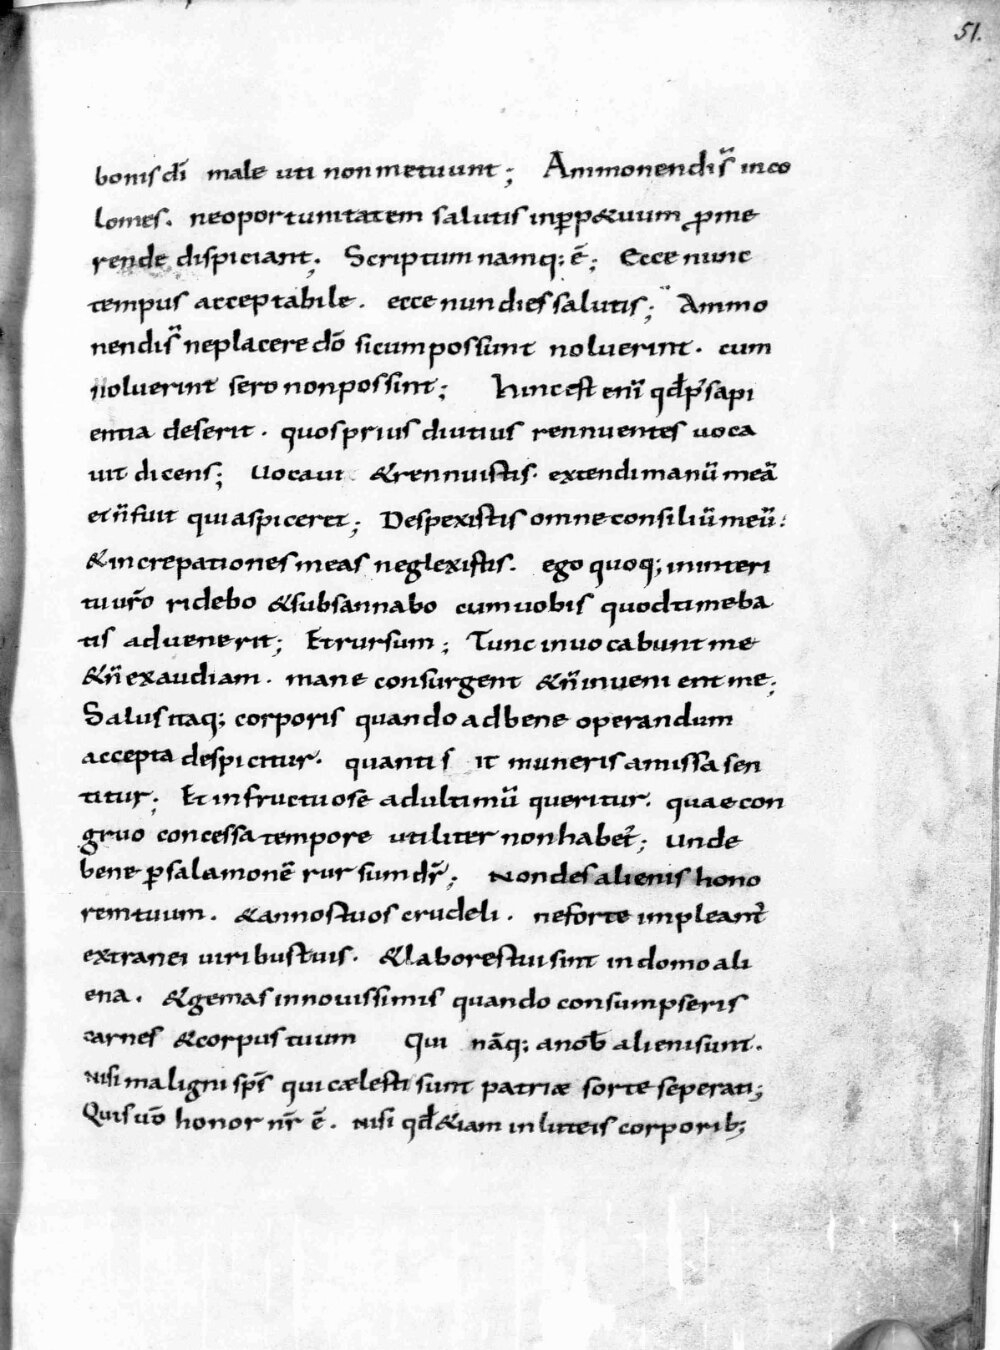 51.
bonis dī male uti non metuunt; Ammonendi sͣ inco
lomes. ne oportunitatem salutis in ꝑp&uum ꝓme
rende dispiciant; Scriptum namq; ē; Ecce nunc
tempus acceptabile. ecce nun dies salutis; Ammo
nendi sͣ ne placere dō si cum possunt noluerint. cum
noluerint sero non possint; Hinc est enī qđ ꝑ sapi
entia deserit. quos prius diutius rennuentes uoca
uit dicens; Uocaui & rennuistis. extendi manū meā
et n̄ fuit qui aspiceret; Despexistis omne consiliū meū:
& increpationes meas neglexistis. ego quoq; in interi
tu ur̄o ridebo & subsannabo cum uobis quod timeba
tis aduenerit; Et rursum; Tunc inuocabunt me
& n̄ exaudiam. mane consurgent & n̄ inuenient me;
Salus itaq; corporis quando ad bene operandum
accepta despicitur. quanti sit muneris amissa sen
titur; Et infructuose ad ultimū queritur. quae con
gruo concessa tempore utiliter non habet᷑; Unde
bene ꝑ salamonē rursum dr̄; Non des alienis hono
rem tuum. & annos tuos crudeli. ne forte impleant᷑
extranei uiribus tuis. & labores tui sint in domo ali
ena. & gemas in nouissimis quando consumpseris
carnes & corpus tuum Qui nāq; a nob̄ alieni sunt.
nisi maligni sp̄s qui cælesti sunt patriæ sorte seperati;
Quis uō honor nr̄ ē. nisi qđ &iam in luteis corporib;